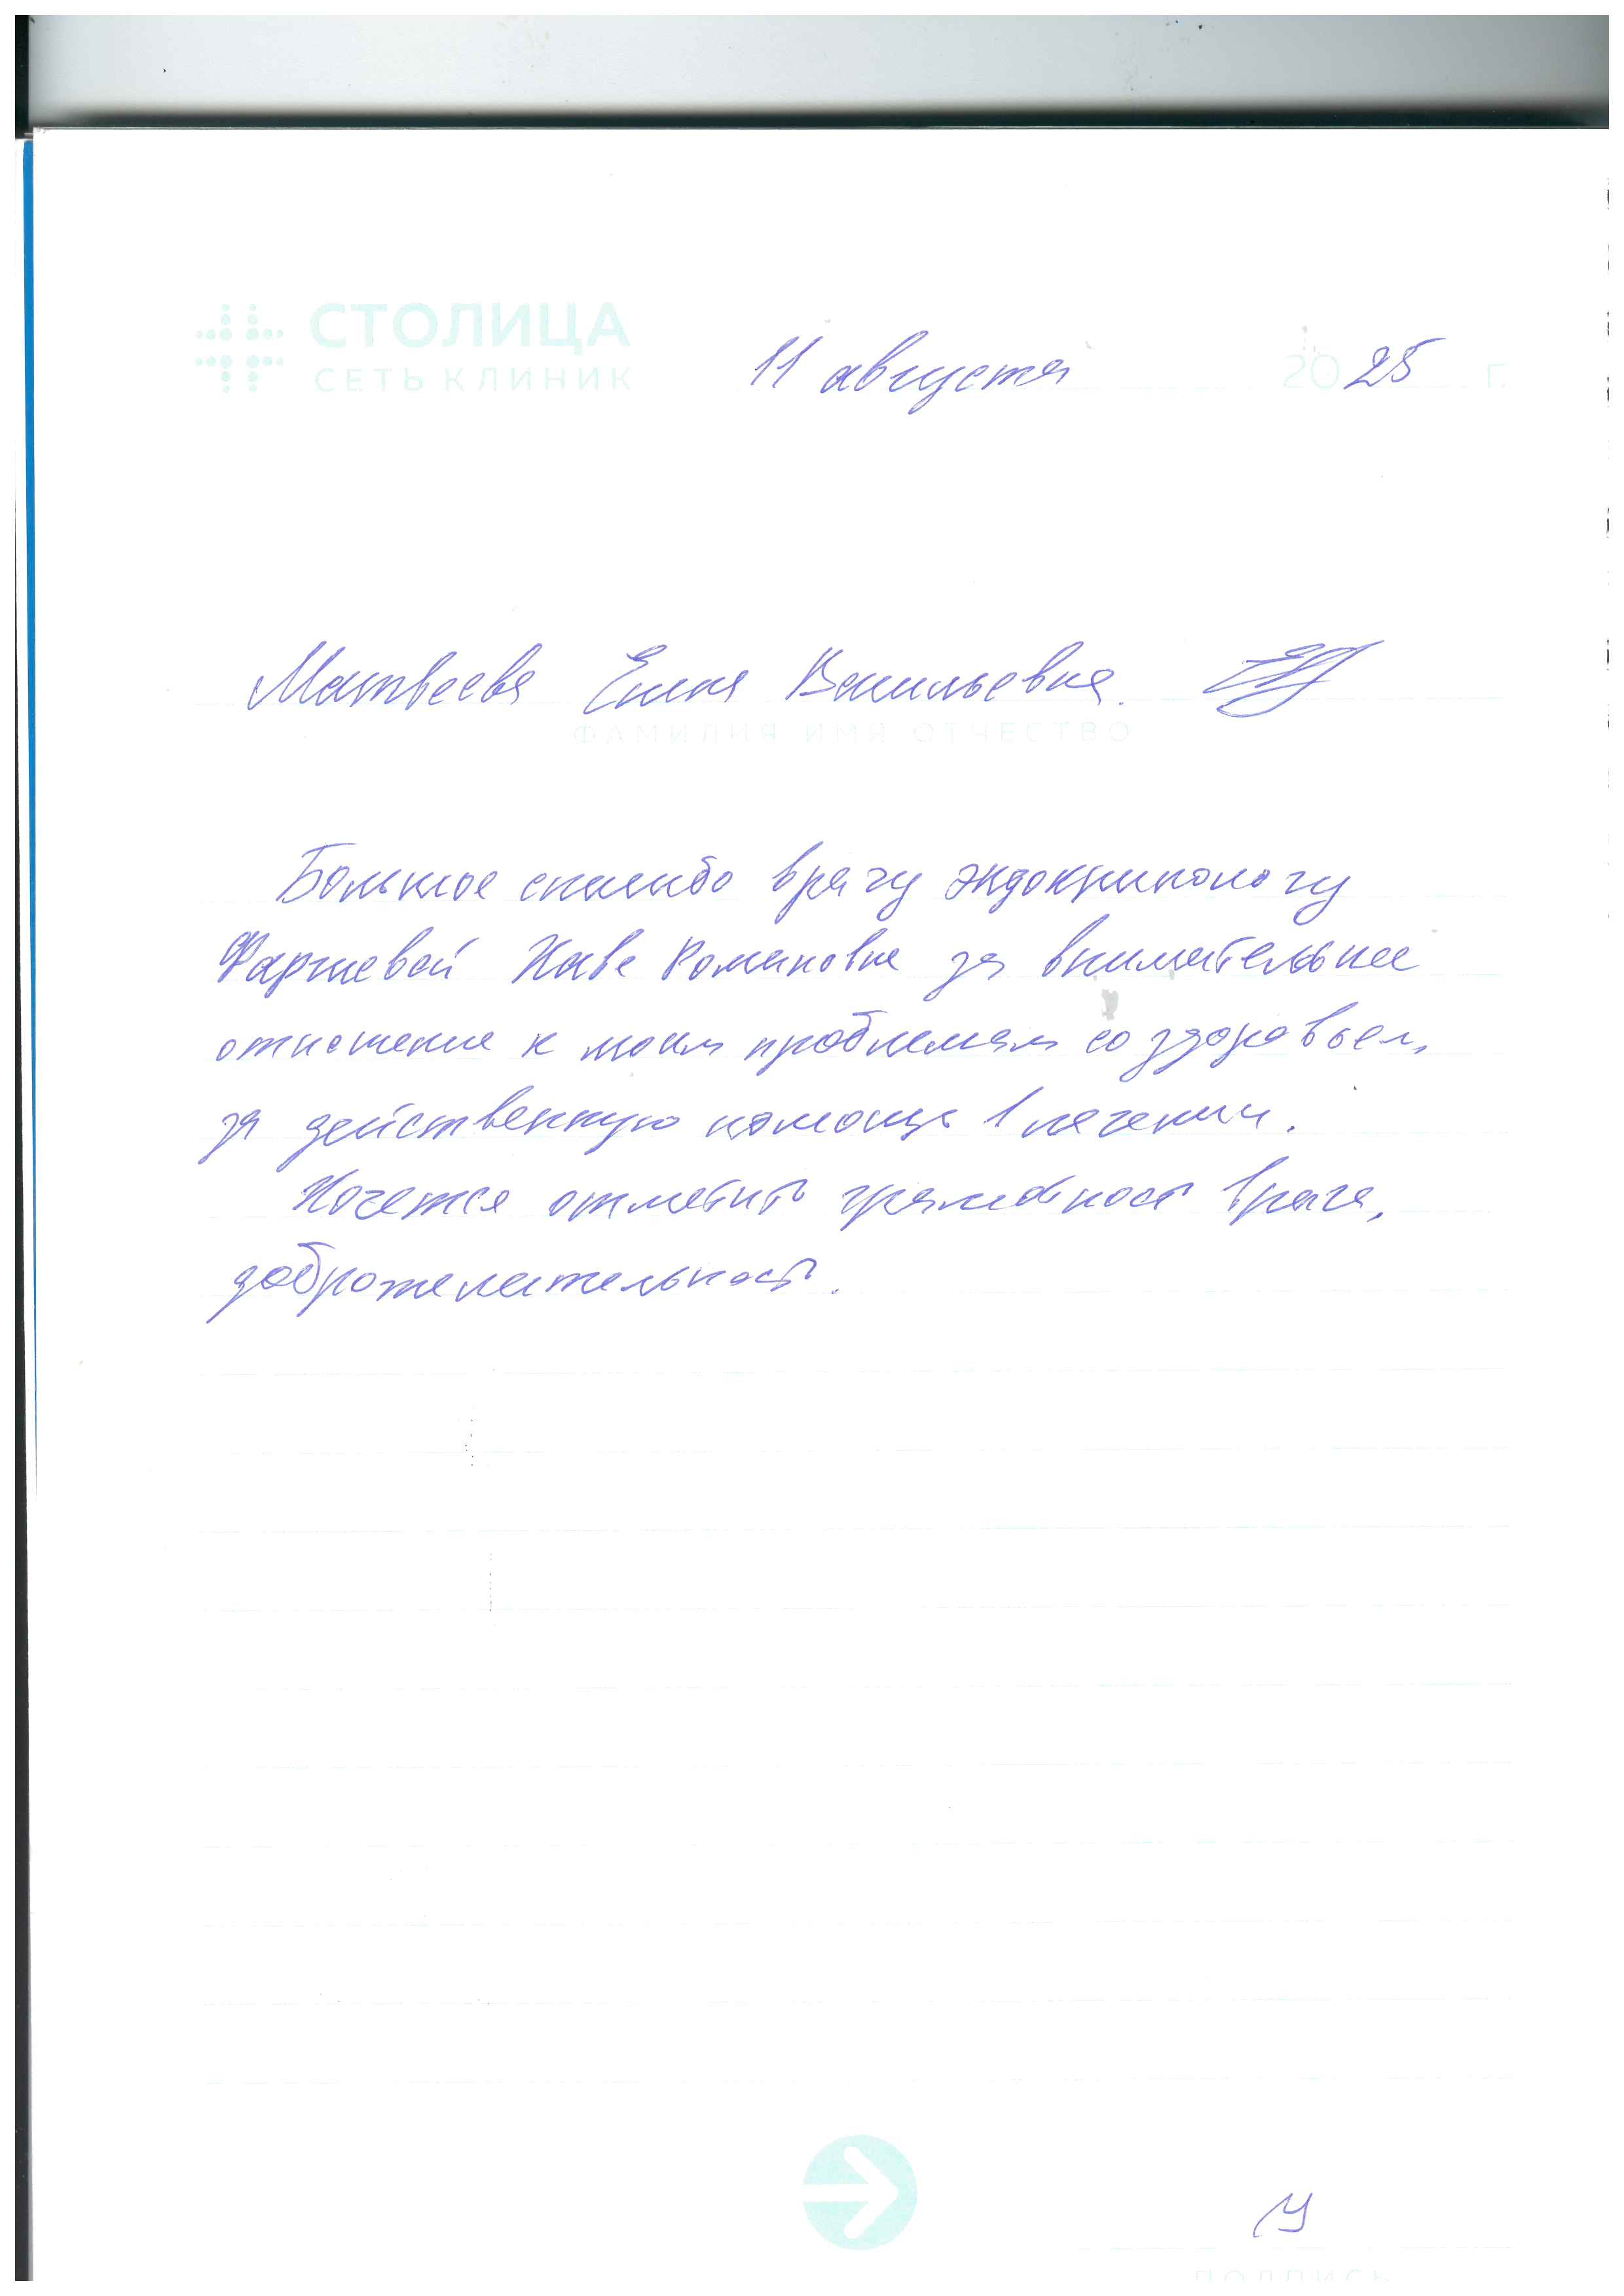 СТОЛИЦА
СЕТЬ КЛИНИК
11 августа 20 25 г.
Матвеева Елена Васильевна.
ФАМИЛИЯ ИМЯ ОТЧЕСТВО
Большое спасибо врачу эндокринологу
Романовне за внимательное
отношение к моим проблемам со здоровьем,
за действенную помощь в лечении.
Хочется отметить грамотность врача,
доброжелательность.
ПОДПИСЬ